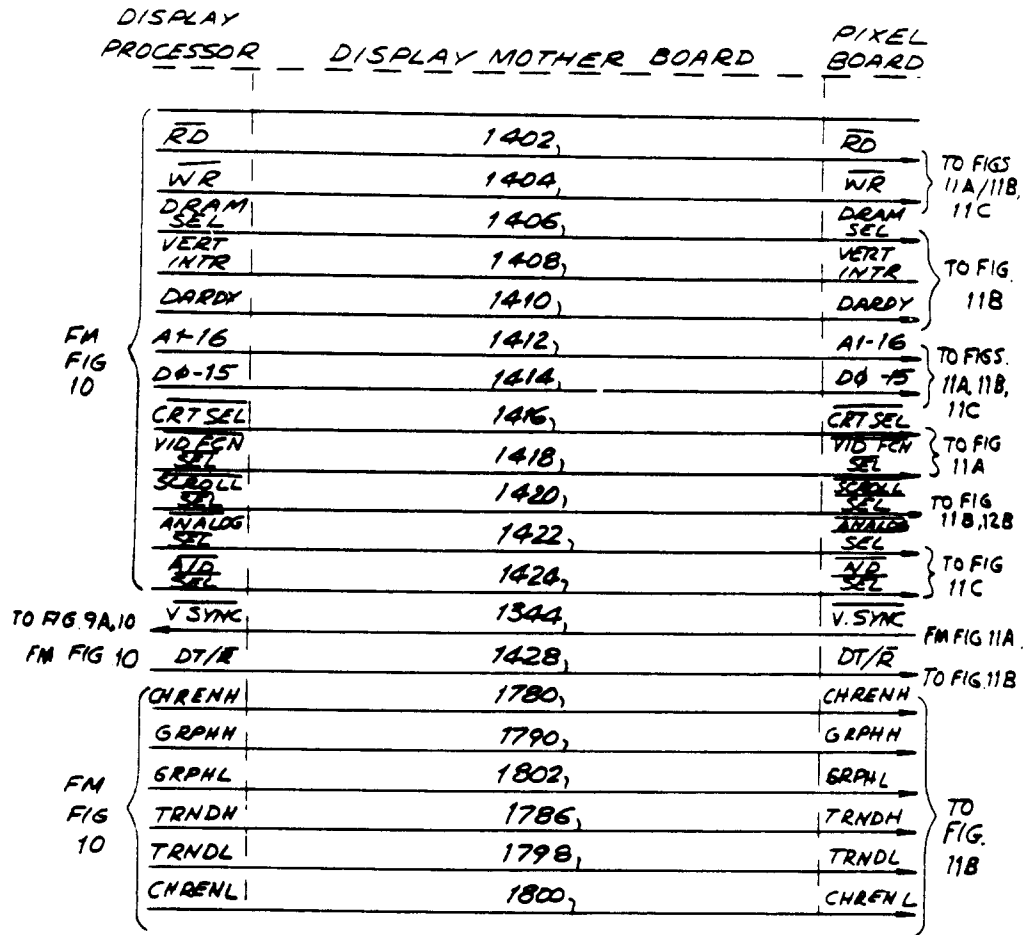 DISPLAY PROCESSOR
DISPLAY MOTHER BOARD
PIXEL BOARD
FM FIG 10
RD 1402, RD
WR 1404, WR
TO FIGS 11A/11B, 11C
DRAM SEL 1406, DRAM SEL
VERT INTR 1408, VERT INTR
DARDY 1410, DARDY
TO FIG. 11B
A1-16 1412, A1-16
DØ-15 1414, DØ-15
TO FIGS. 11A, 11B, 11C
CRT SEL 1416, CRT SEL
VID FCN SEL 1418, VID FCN SEL
TO FIG 11A
SCROLL SEL 1420, SCROLL SEL
TO FIG 11B, 12B
ANALOG SEL 1422, ANALOG SEL
A/D SEL 1424, A/D SEL
TO FIG 11C
TO FIG. 9A, 10 V SYNC 1344, V. SYNC FM FIG 11A
FM FIG 10 DT/R 1428, DT/R TO FIG. 11B
FM FIG 10
CHRENH 1780, CHRENH
GRPHH 1790, GRPHH
GRPHL 1802, GRPHL
TRNDH 1786, TRNDH
TRNDL 1798, TRNDL
CHRENL 1800, CHRENL
TO FIG. 11B